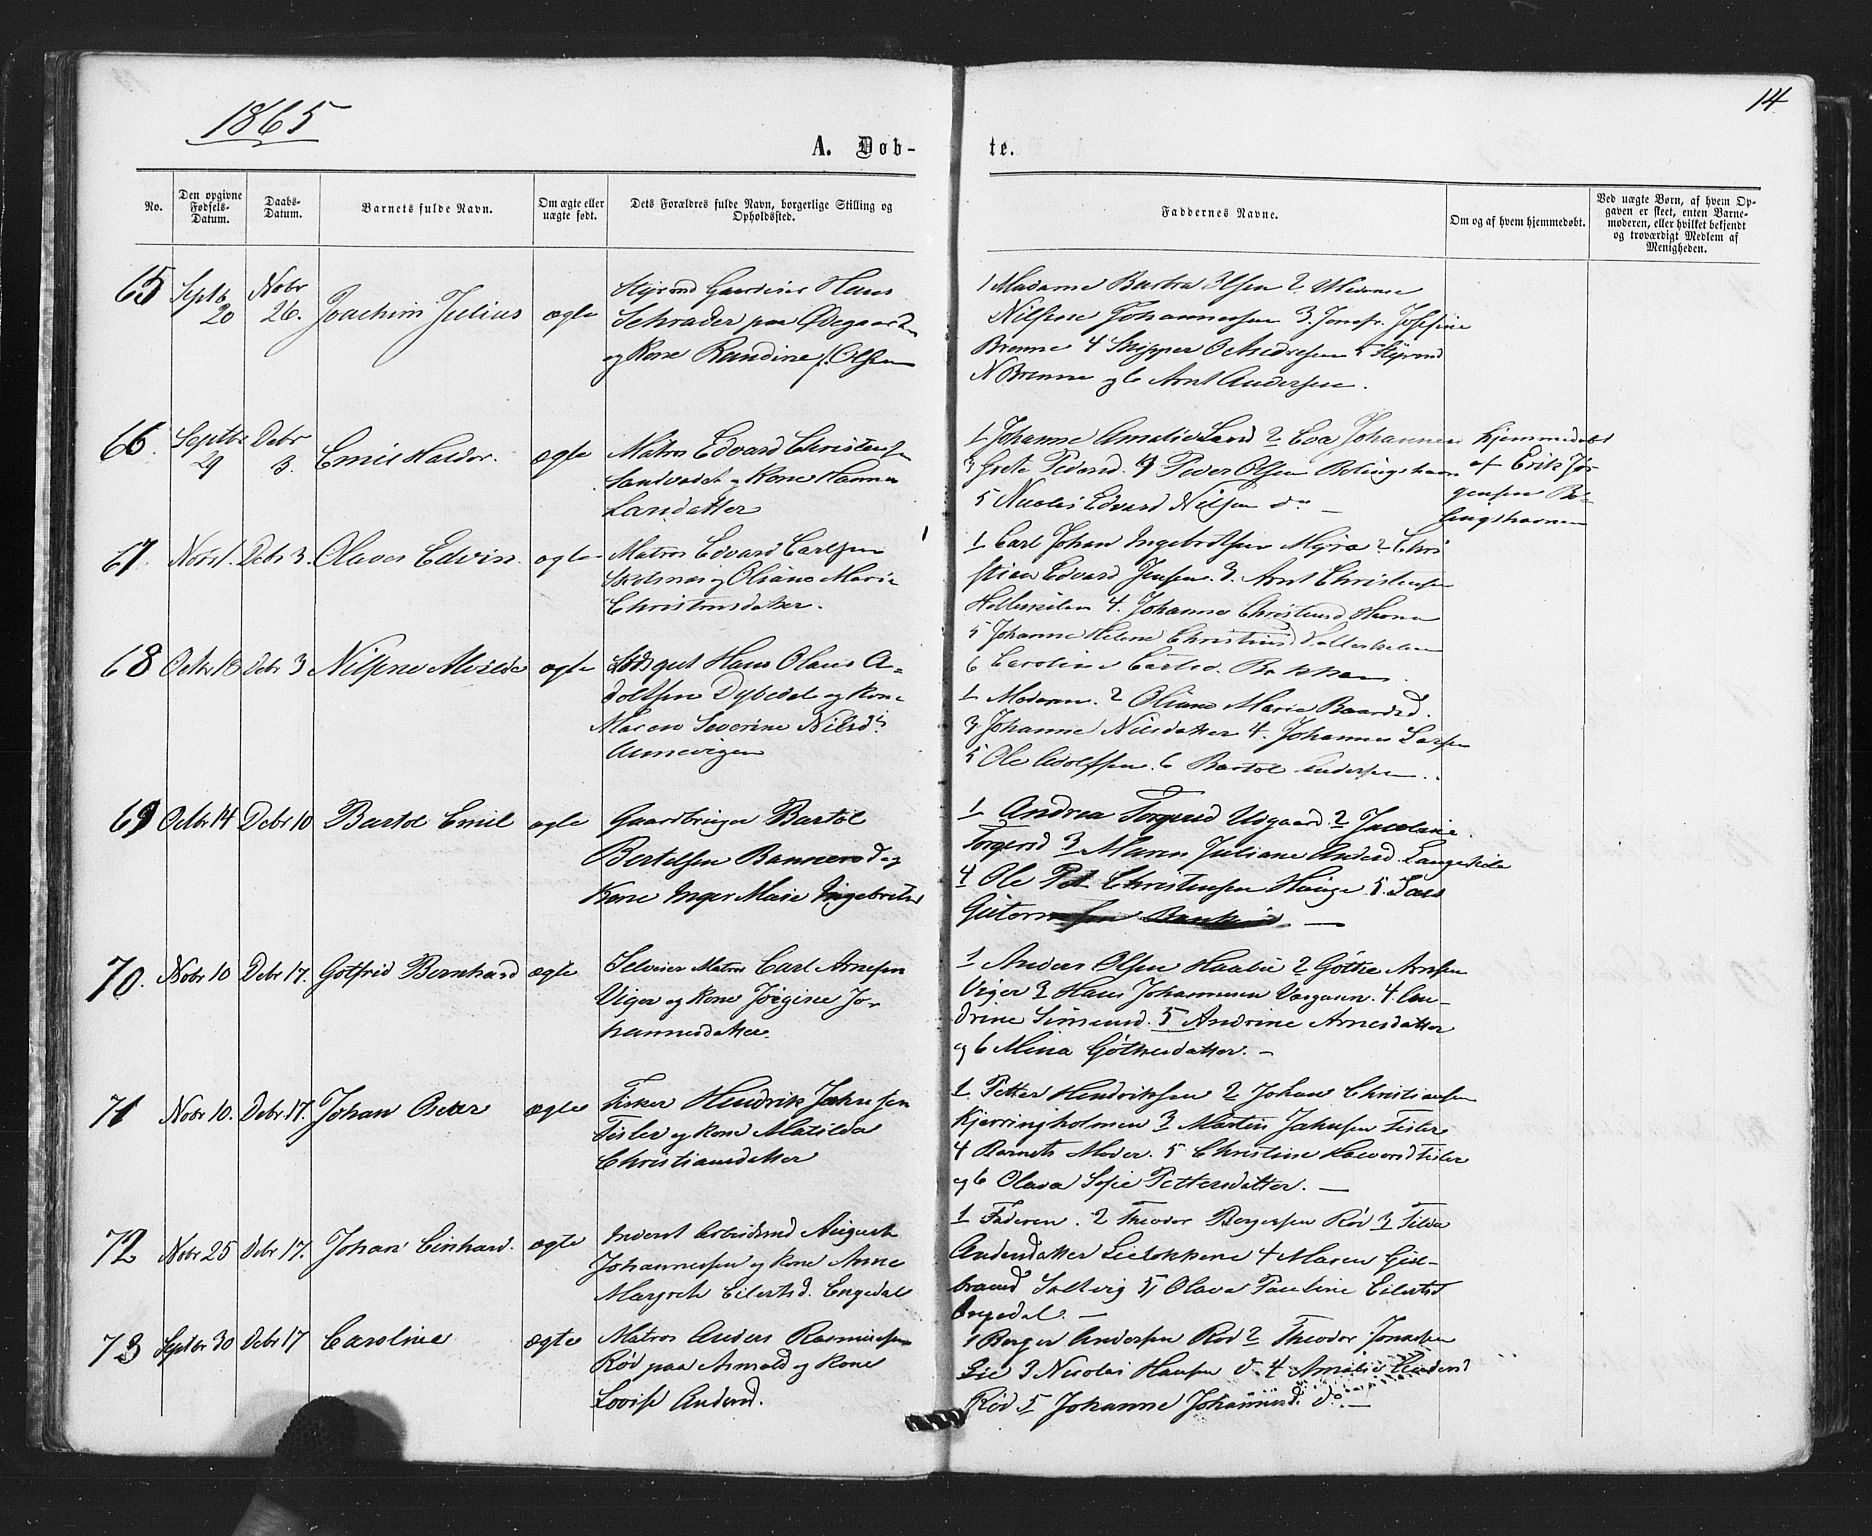 1865
14
A. Døb-
te.
No.
Den opgivne Fødsels-Datum.
Daabs-Datum.
Barnets fulde Navn.
Om ægte eller uægte født.
Dets Forældres fulde Navn, borgerlige Stilling og Opholdssted.
Faddernes Navne.
Om og af hvem hjemmedøbt.
Ved uægte Børn, af hvem Op-
gaven er skeet, enten Barne-
moderen, eller hvilket bekjendt
og troværdigt Medlem af
Menigheden.
65 Septb 20 Nobr 26. Joachim Julius ægte
Styrmd Hans
Schrader paa Ødegaard
og Kone Randine f. Olsen
1 Madame Olsen 2 Madame
Nilsine Johannessen 3. Jomfr. Josefine
Brønne 4 Skipper O Andresen 5 Styrmd
N Brønne og 6 Arnt Andersen.
66. Septbr 29 Debr 3. Emil Haldor. ægte
Matros Edvard Christensen
Sandvedet og Kone Hanna
Larsdatter
1 Johanne Amalie 2 Eva Johannes
3 Grete Pedersd. 4 Peder Olsen
5 Nicolai Edvard Nilsen do
hjemmedøbt
af Erik Jør-
gensen
67. Nobr 1. Debr 3. Olaves Edvin. ægte
Matros Edvard Carlsen
og Oliane Marie
Christensdatter.
1 Carl Johan Ingebretsen Myra 2 Chri
stian Edvard Jensen. 3. Arnt Christensen
4. Johanne Christensd
5 Johanne Helene
6 Caroline Carlsd. Bakken.
68 Octbr 13 Debr 3 Nilsine Mathilde ægte
Lodsgut Hans Olaus A-
dolfsen Dybedal og Kone
Maren Severine Nilsd:
Aunevigen
1 Moderen. 2 Oliane Marie Baardsd.
3 Johanne Nilsdatter 4. Johannes Larsen
5 Ole Adolfsen. 6 Bartol Andersen.
69 Octbr 14 Debr 10 Bartol Emil ægte
Gaardbruger Bartol
Bertelsen og
Kone Inger Marie Ingebretsd
1 Andrea Torgersd 2 Jacobine
Torgersd 3 Maren Juliane Andersd. Langeskilde
4 Ole Christensen Hauge 5. Lars
70. Nobr 10 Debr 17. Gotfrid Bernhard ægte
Selveier Matros Carl Arnesen
Viger og Kone Jørgine Jo-
hannesdatter.
1 Anders Olsen 2 Gøthe Arnesen
Viger 3 Hans Johannesen 4 An-
drine Simensd. 5 Andrine Arnesdatter
og 6 Mina Gøthesdatter.
71 Nobr 10. Debr. 17. Johan Oscar ægte
Fisker Hendrik Jahnsen
Tisler og Kone Matilda
Christiansdatter
1. Petter Hendriksen 2 Johan Christiansen
Kjerringholmen 3 Martin Jahnsen Tisler
4 Barnets Moder. 5 Christine Halvorsd Tisler
og 6 Olava Sofie Pettersdatter.
72 Nobr 25 Debr 17. Johan Einhard. ægte
Inderst Arbeidsmd August
Johannessen og Kone Anne
Margrete Eilertsd. Engedal
1 Faderen. 2 Theodor Bergersen Rød 3 Tilda
Andersdatter Lieløkkene 4 Maren Gul-
brand 5 Olava Pauline Eilertsd
Engedal
73 Septbr 30 Debr 17 Caroline ægte
Matros Anders Rasmussen
Rød paa og Kone
Lovise Andersd.
1 Berger Andersen Rød 2 Theodor
Lie 3 Nicolai Hansen do 4 Amalie Andersd
Rød 5 Johanne Johannesd. do.